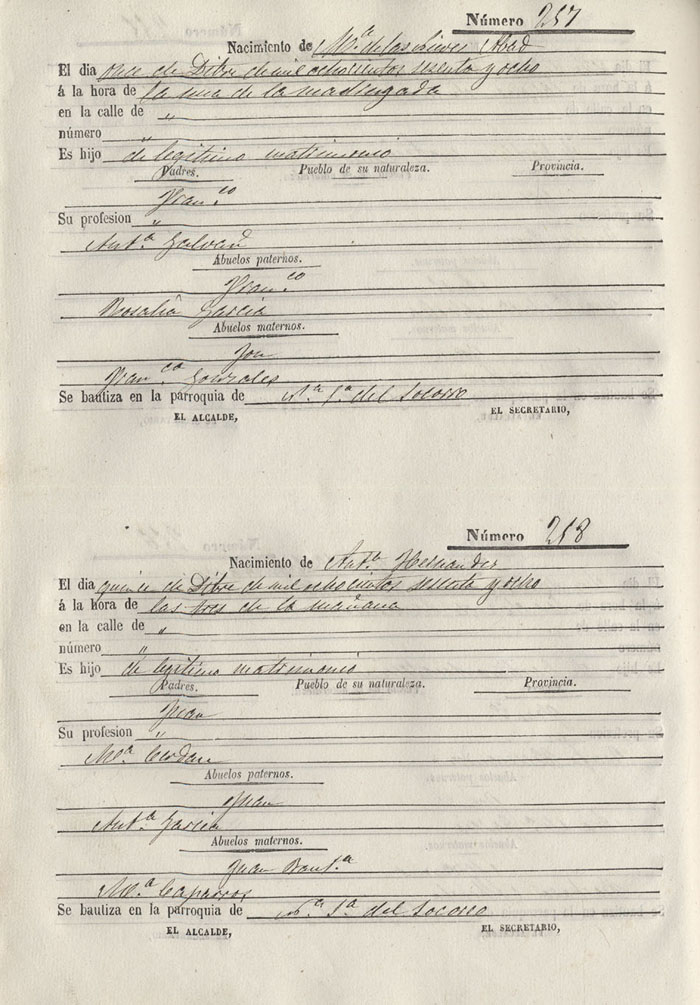 Número 257
Nacimiento de Mª. de las Nieves Abad
El dia once de Dibre de mil ochocientos sesenta y ocho
á la hora de la una de la madrugada
en la calle de "
número "
Es hijo de legitimo matrimonio
Padres. Pueblo de su naturaleza. Provincia.
Franco
Su profesion "
Antª Galvañ
Abuelos paternos.
Franco
Rosalia Garcia
Abuelos maternos.
Jose
Franca Gonzales
Se bautiza en la parroquia de Nª Sª del Socorro
EL ALCALDE, EL SECRETARIO,
Número 258
Nacimiento de Antª Hernandez
El dia quince de Dibre de mil ochocientos sesenta y ocho
á la hora de las tres de la mañana
en la calle de "
número "
Es hijo de legitimo matrimonio
Padres. Pueblo de su naturaleza. Provincia.
Juan
Su profesion "
Mª Cerdan
Abuelos paternos.
Juan
Antª Garcia
Abuelos maternos.
Juan Bautª
Mª Caparros
Se bautiza en la parroquia de Nª Sª del Socorro
EL ALCALDE, EL SECRETARIO,